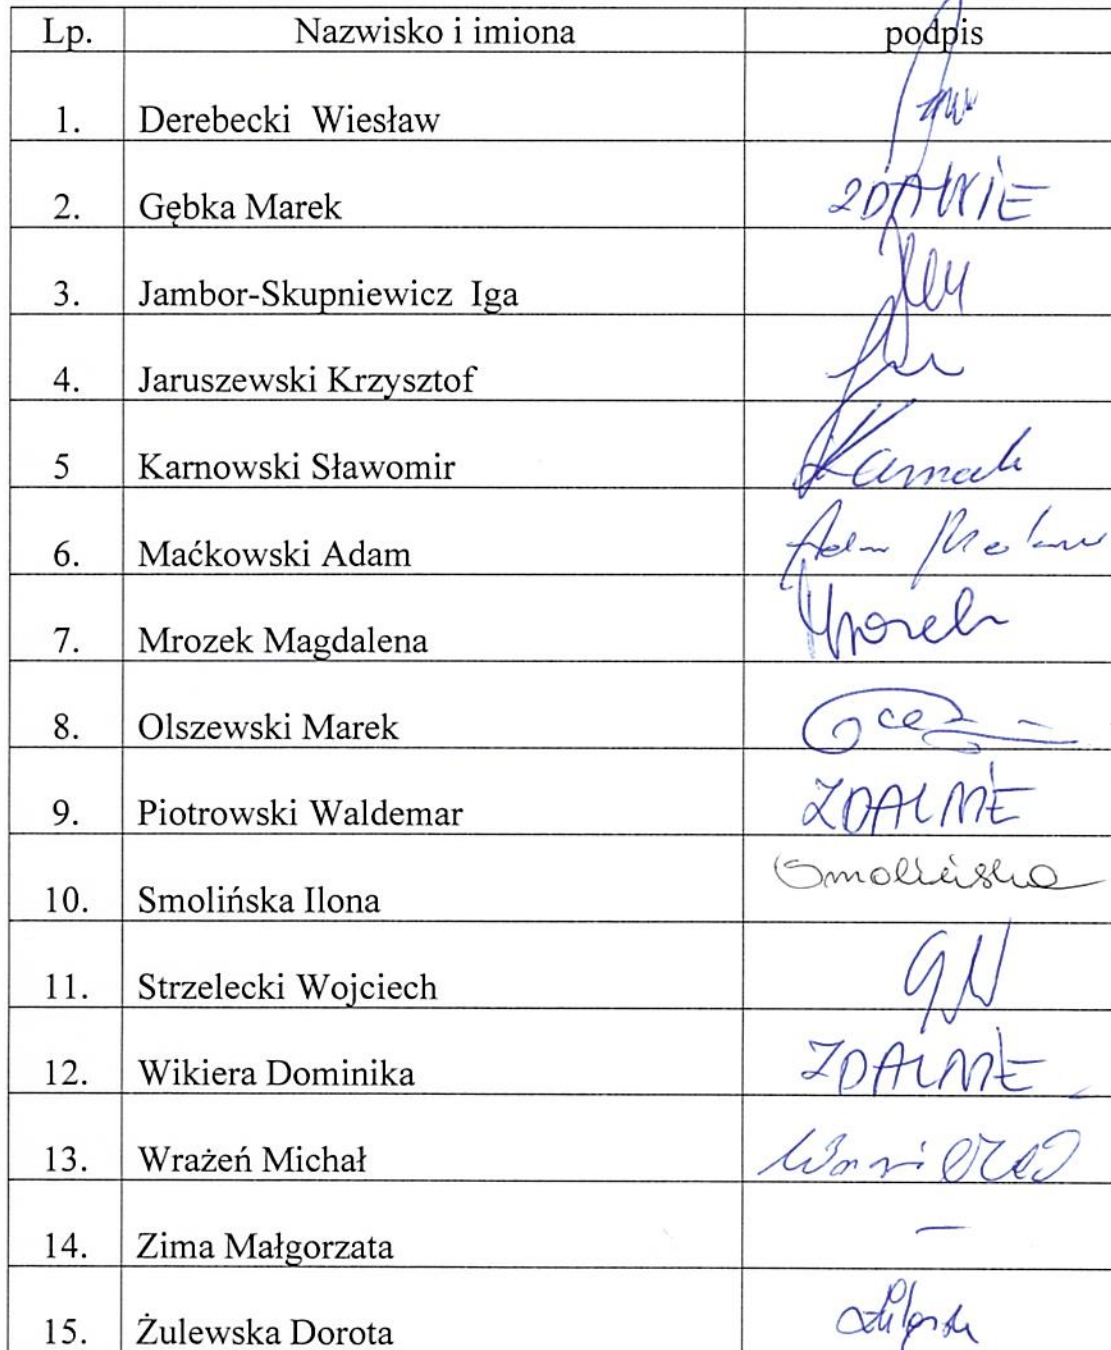 Lp. Nazwisko i imiona podpis
1. Derebecki Wiesław
2. Gębka Marek ZDALNIE
3. Jambor-Skupniewicz Iga
4. Jaruszewski Krzysztof
5 Karnowski Sławomir
6. Maćkowski Adam Adam
7. Mrozek Magdalena Mrozek
8. Olszewski Marek
9. Piotrowski Waldemar ZDALNIE
10. Smolińska Ilona Smolińska
11. Strzelecki Wojciech
12. Wikiera Dominika ZDALNIE
13. Wrażeń Michał
14. Zima Małgorzata —
15. Żulewska Dorota